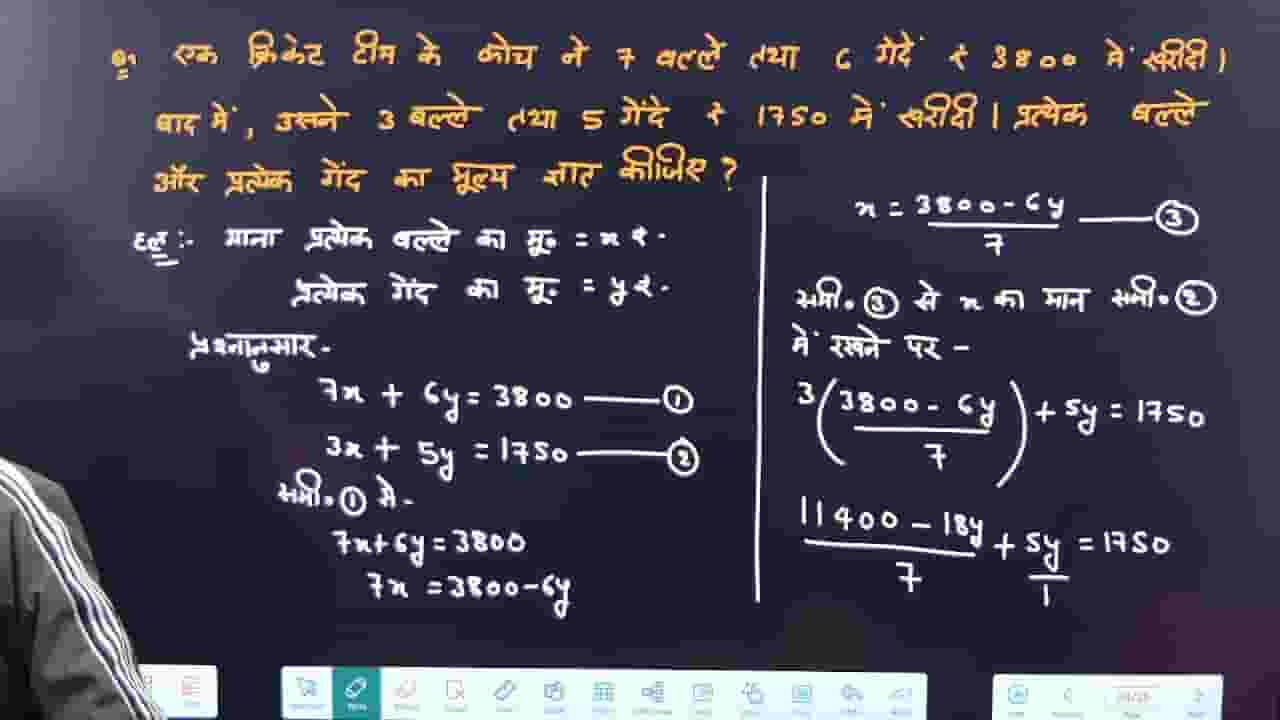 Q, एक क्रिकेट टीम के कोच ने 7 बल्ले तथा 6 गेदें ₹ 3800 में खरीदी।
बाद में, उसने 3 बल्ले तथा 5 गेंदे ₹ 1750 में खरीदी। प्रत्येक बल्ले
और प्रत्येक गेंद का मूल्य ज्ञात कीजिए?
हल:- माना प्रत्येक बल्ले का मू॰ = x ₹.
प्रत्येक गेंद का मू॰ = y ₹.
प्रश्नानुसार-
7x + 6y = 3800 —— ①
3x + 5y = 1750 —— ②
समी॰ ① से-
7x+6y=3800
7x = 3800-6y
x = (3800-6y)/7 —— ③
समी॰ ③ से x का मान समी॰ ②
में रखने पर -
3((3800-6y)/7) + 5y = 1750
(11400-18y)/7 + 5y/1 = 1750